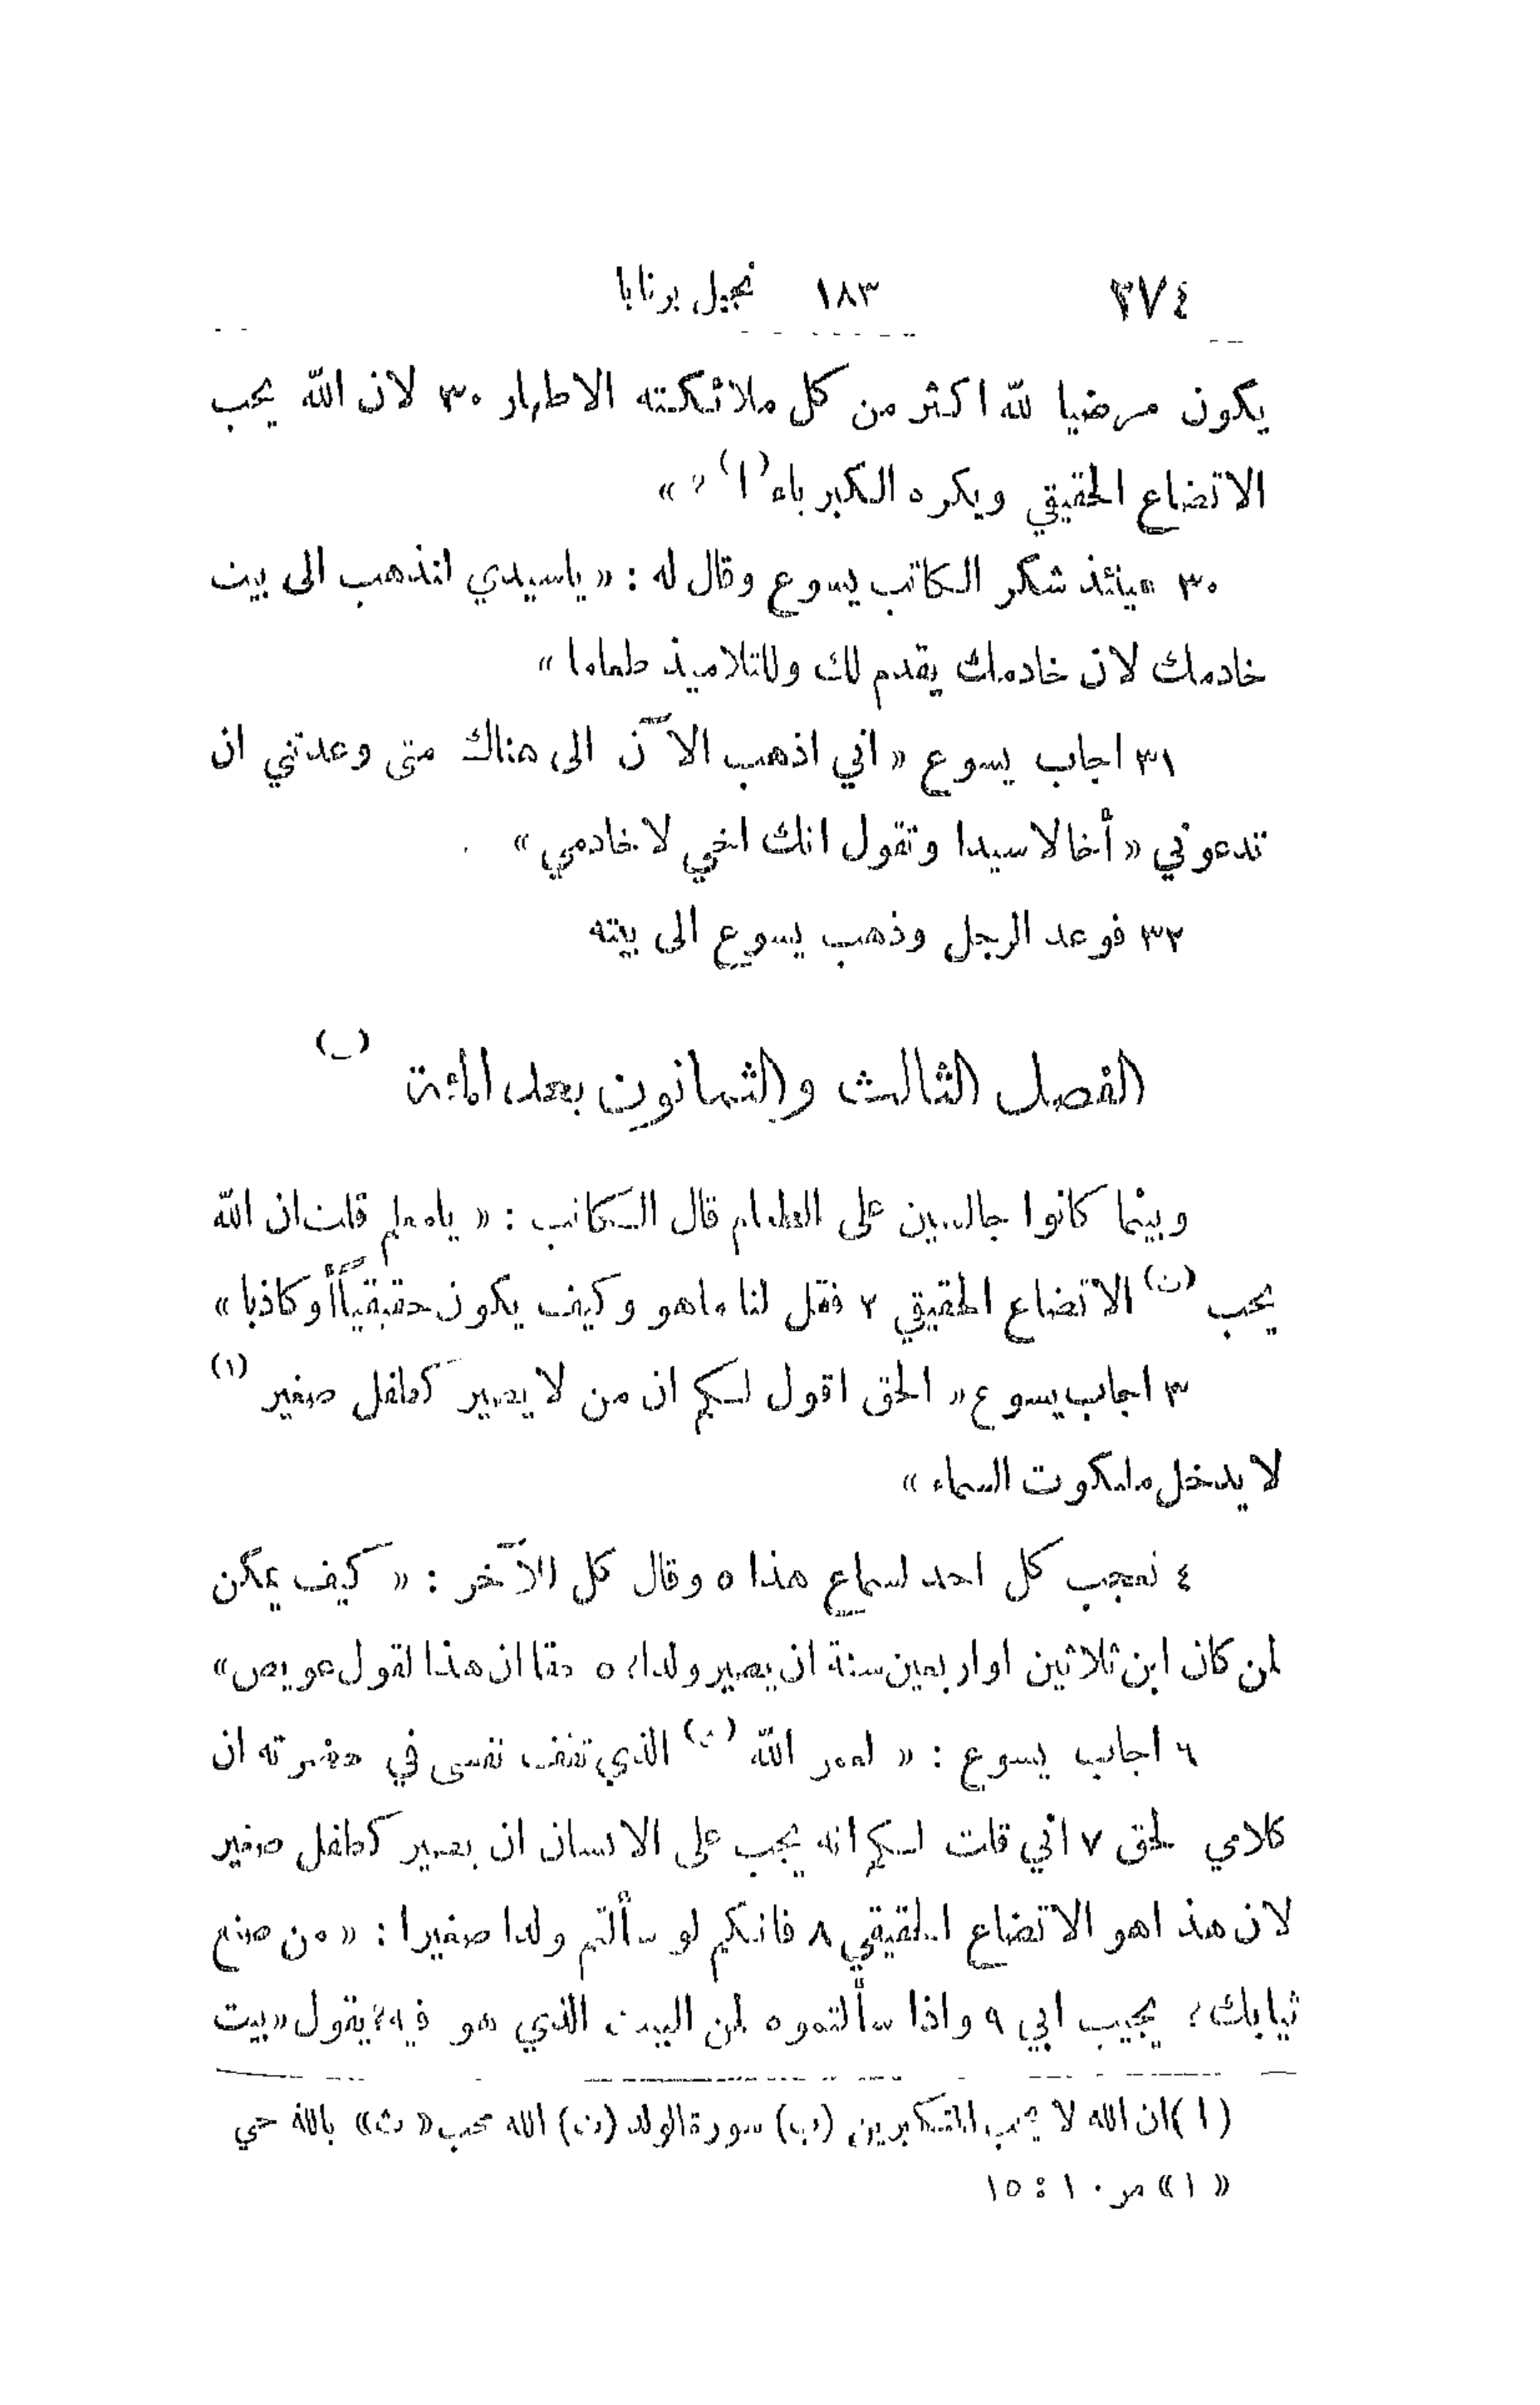 ٢٧٤ ١٨٣ نجيل برنابا
يكون مرضيا لله اكثر من كل ملائكته الاطهار ٣٠ لان الله يحب
الاتضاع الحقيقي ويكره الكبرباء (١) »
٣٠ حينئذ شكر الكاتب يسوع وقال له : « ياسيدي انذهب الى بيت
خادمك لان خادمك يقدم لك وللتلاميذ طعاما »
٣١ اجاب يسوع « اني اذهب الآن الى هناك متى وعدتني ان
تدعوني « أخا لا سيدا وتقول انك اخي لا خادمي »
٣٢ فوعد الرجل وذهب يسوع الى بيته
الفصل الثالث والثمانون بعد المئة (ب)
وبينما كانوا جالسين على الطعام قال الكاتب : « يامعلم قلت ان الله
يحب (ت) الاتضاع الحقيقي ٢ فقل لنا ماهو وكيف يكون حقيقيًا أو كاذبا »
٣ اجاب يسوع « الحق اقول لكم ان من لا يصير كطفل صغير (١)
لا يدخل ملكوت السماء »
٤ تعجب كل احد لسماع هذا ٥ وقال كل الآخر : « كيف يمكن
لمن كان ابن ثلاثين او اربعين سنة ان يصير ولدا؟ ٥ حقا ان هذا لقول عويص »
٦ اجاب يسوع : « لعمر الله (ث) الذي تقف نفسي في حضرته ان
كلامي لحق ٧ اني قلت لكم انه يجب على الانسان ان يصير كطفل صغير
لان هذا هو الاتضاع الحقيقي ٨ فانكم لو سألتم ولدا صغيرا : « من صنع
ثيابك؟ يجيب ابي ٩ واذا سألتموه لمن البيت الذي هو فيه؟ يقول « بيت
(ا) ان الله لا يحب المتكبرين (ب) سورة الولد (ت) الله محب « ث » بالله حي
« ١ » مر ١٠ : ١٥